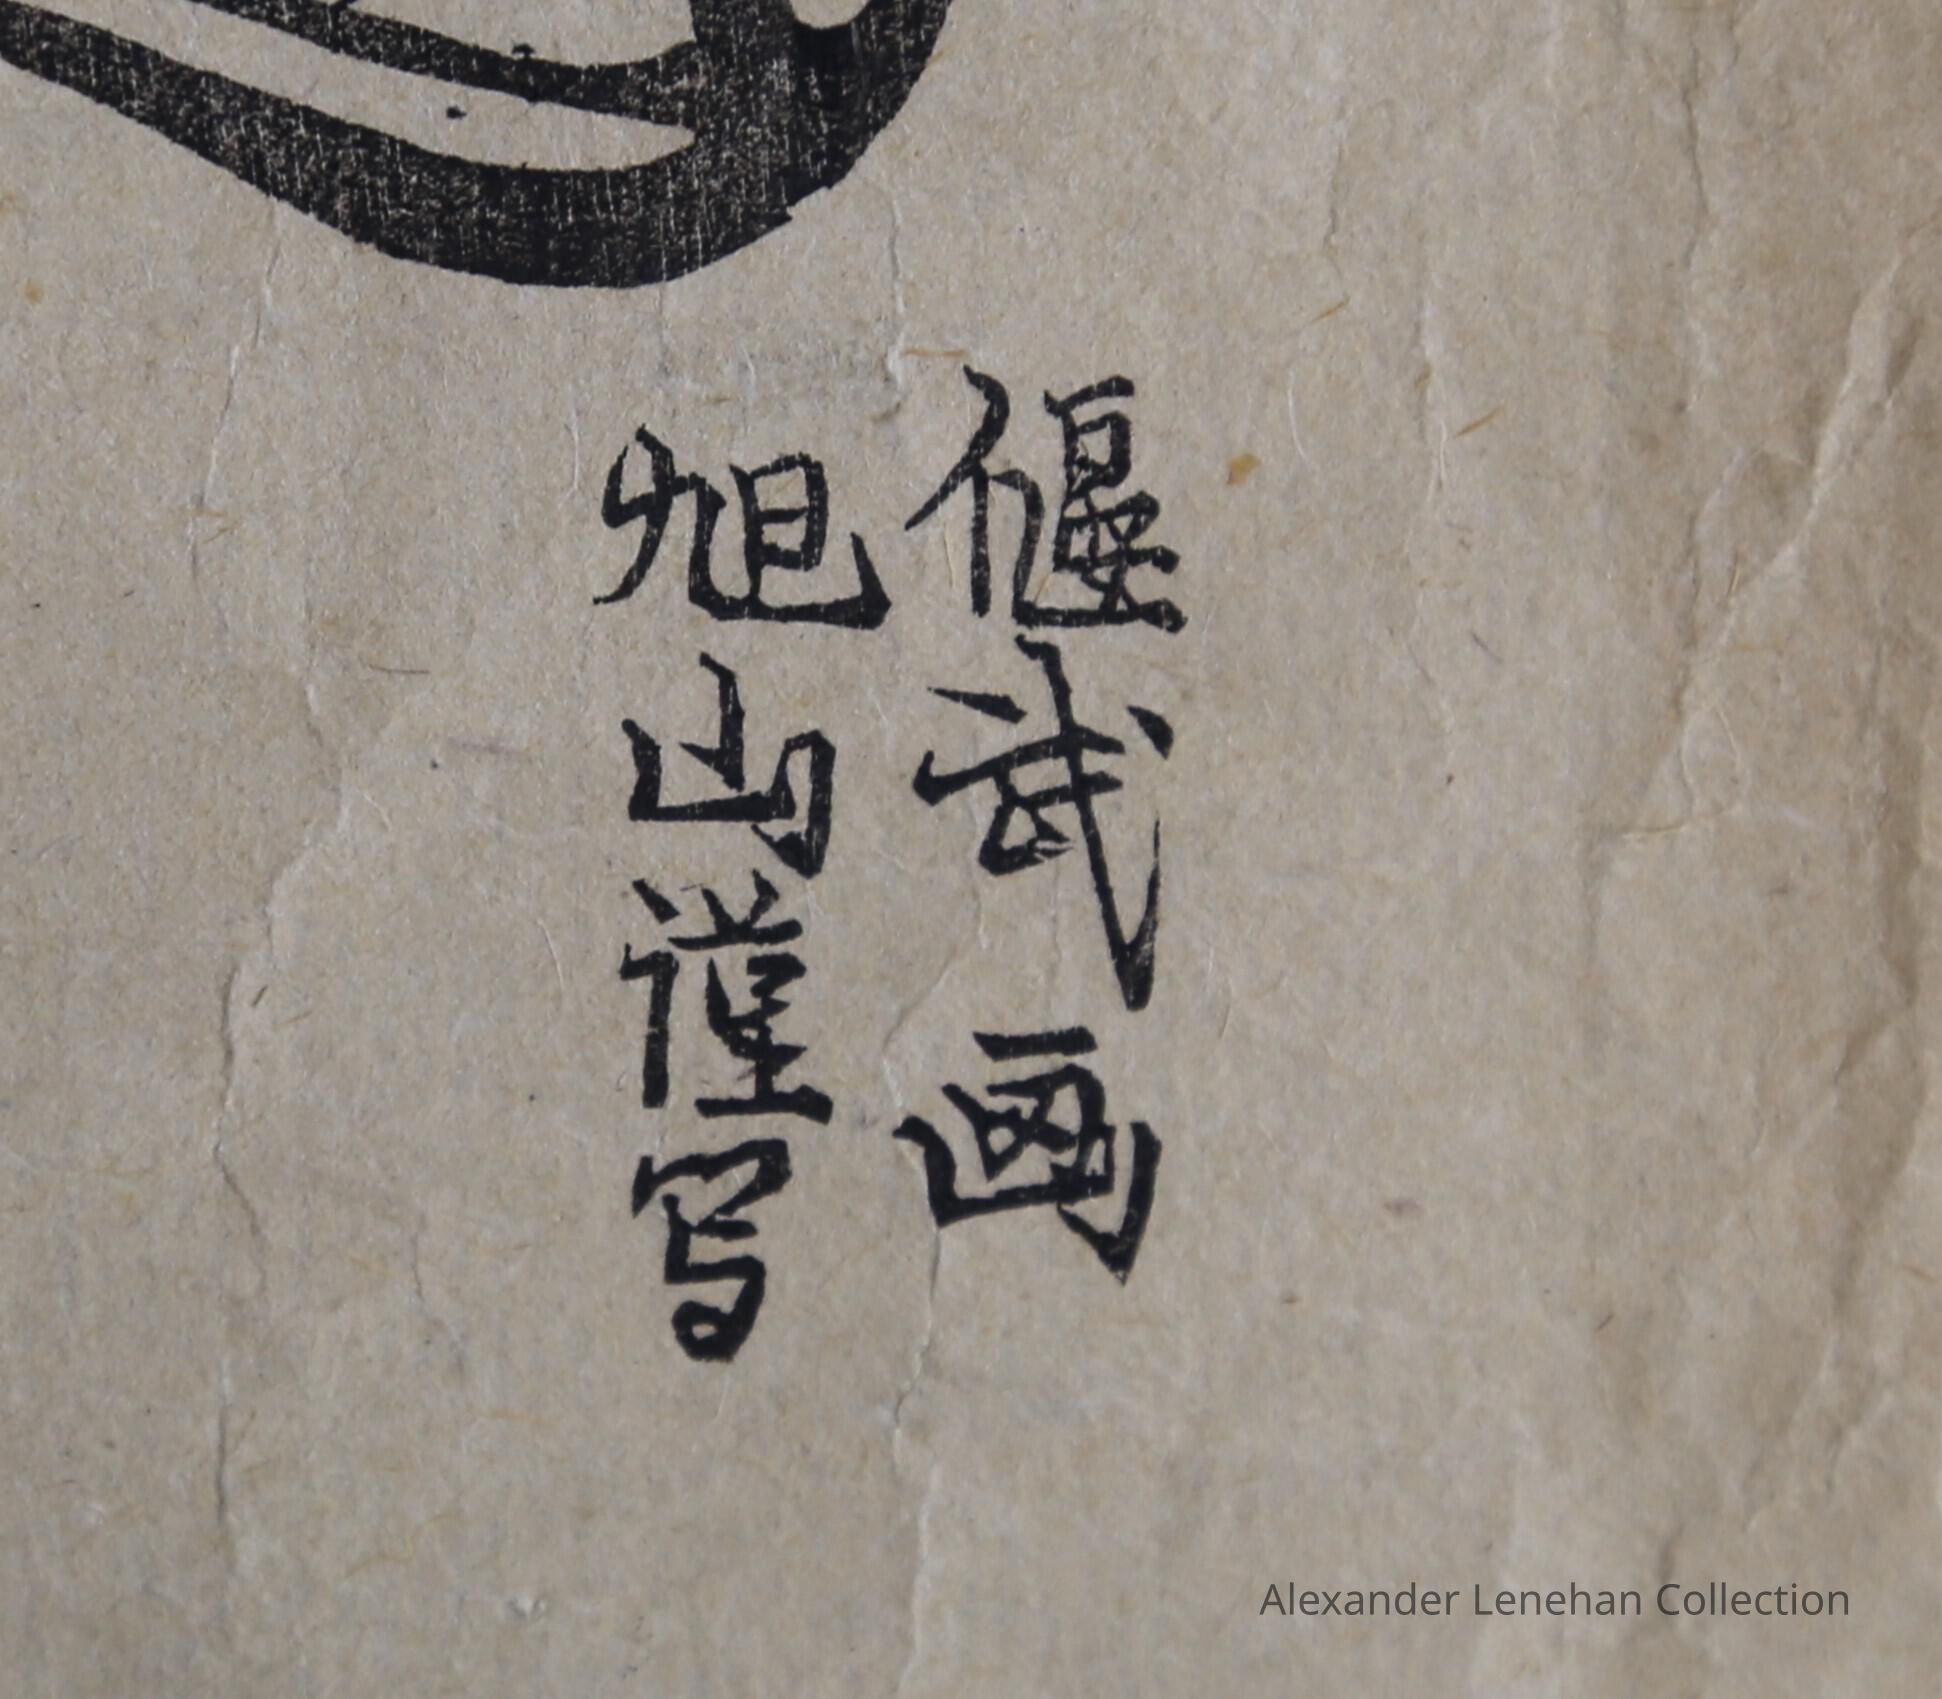 偃武画
旭山謹写
Alexander Lenehan Collection